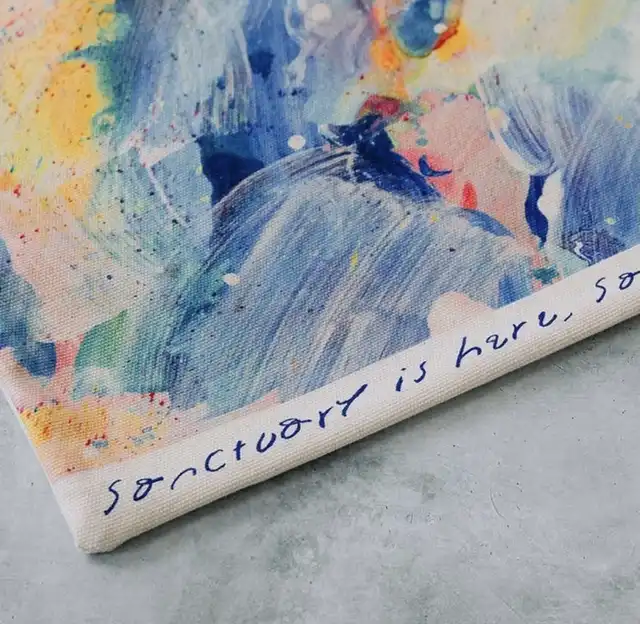 sanctuary is here, so